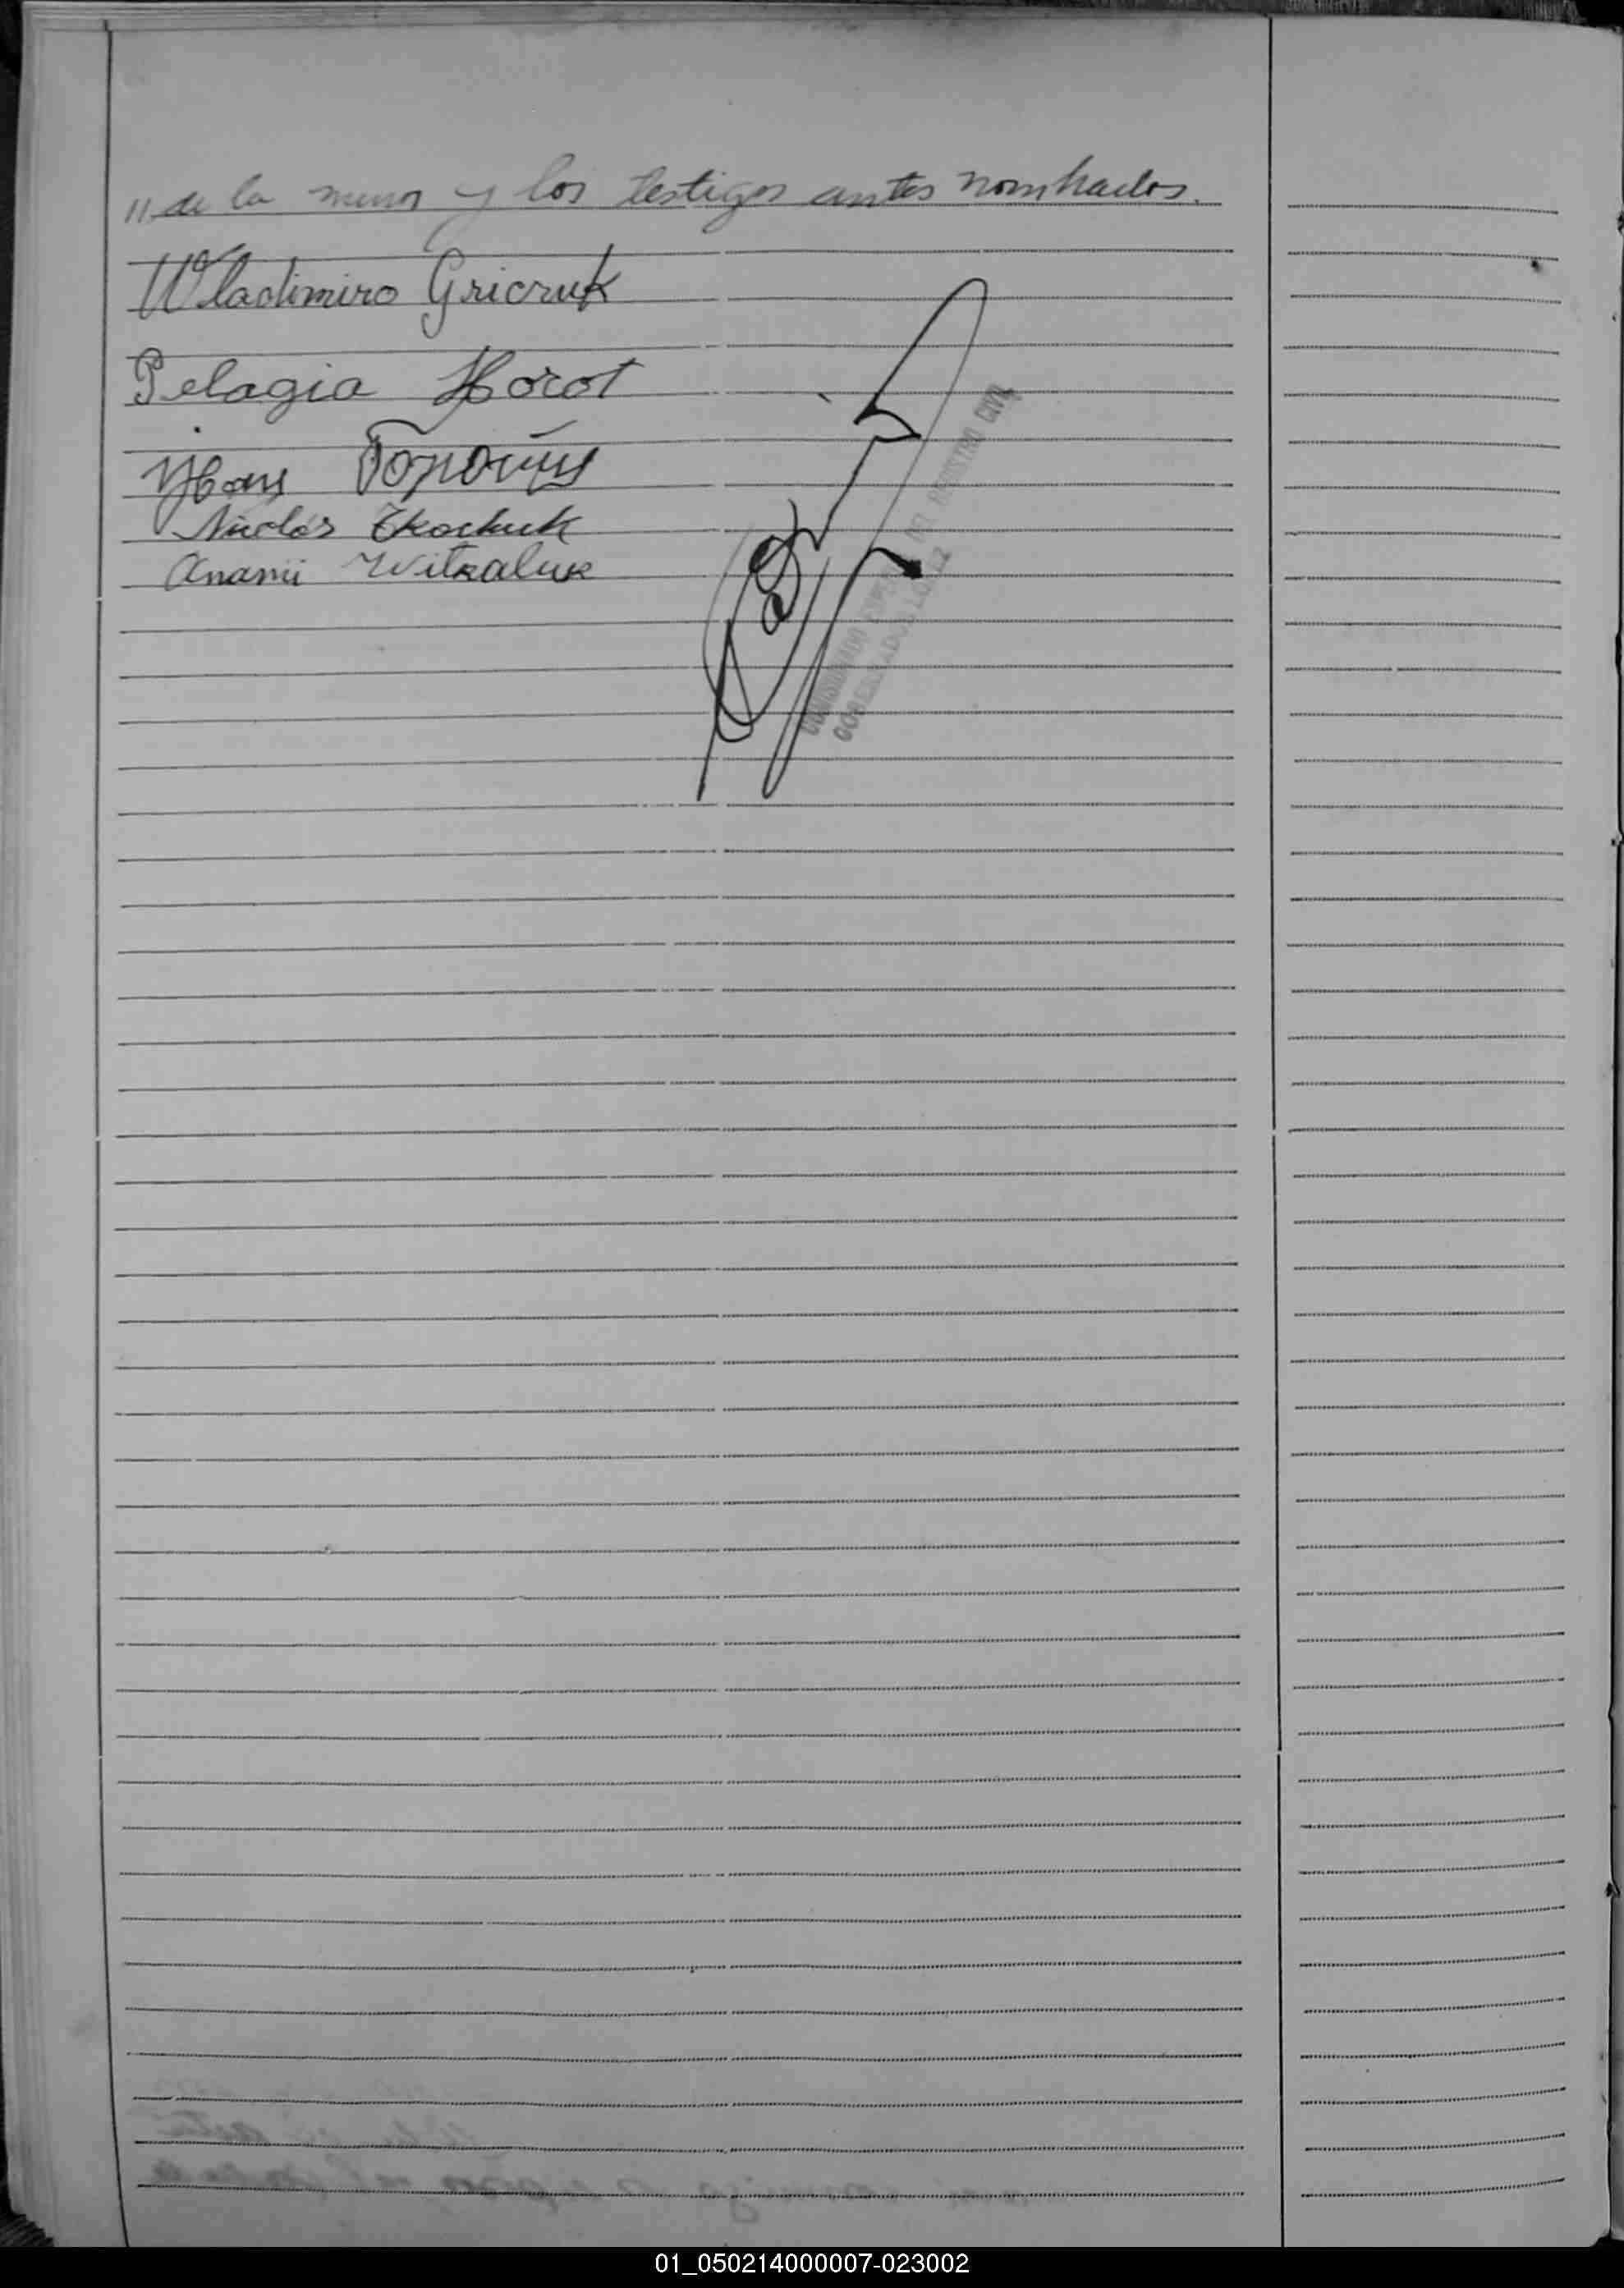 // de la menor y los testigos antes nombrados.
Wladimiro Gricruk
Pelagia Horot
Nicolás Tkachuk
Ananii Witkaluk
DEL REGISTRO CIVIL
GOBERNADOR LOPEZ
01_050214000007-023002